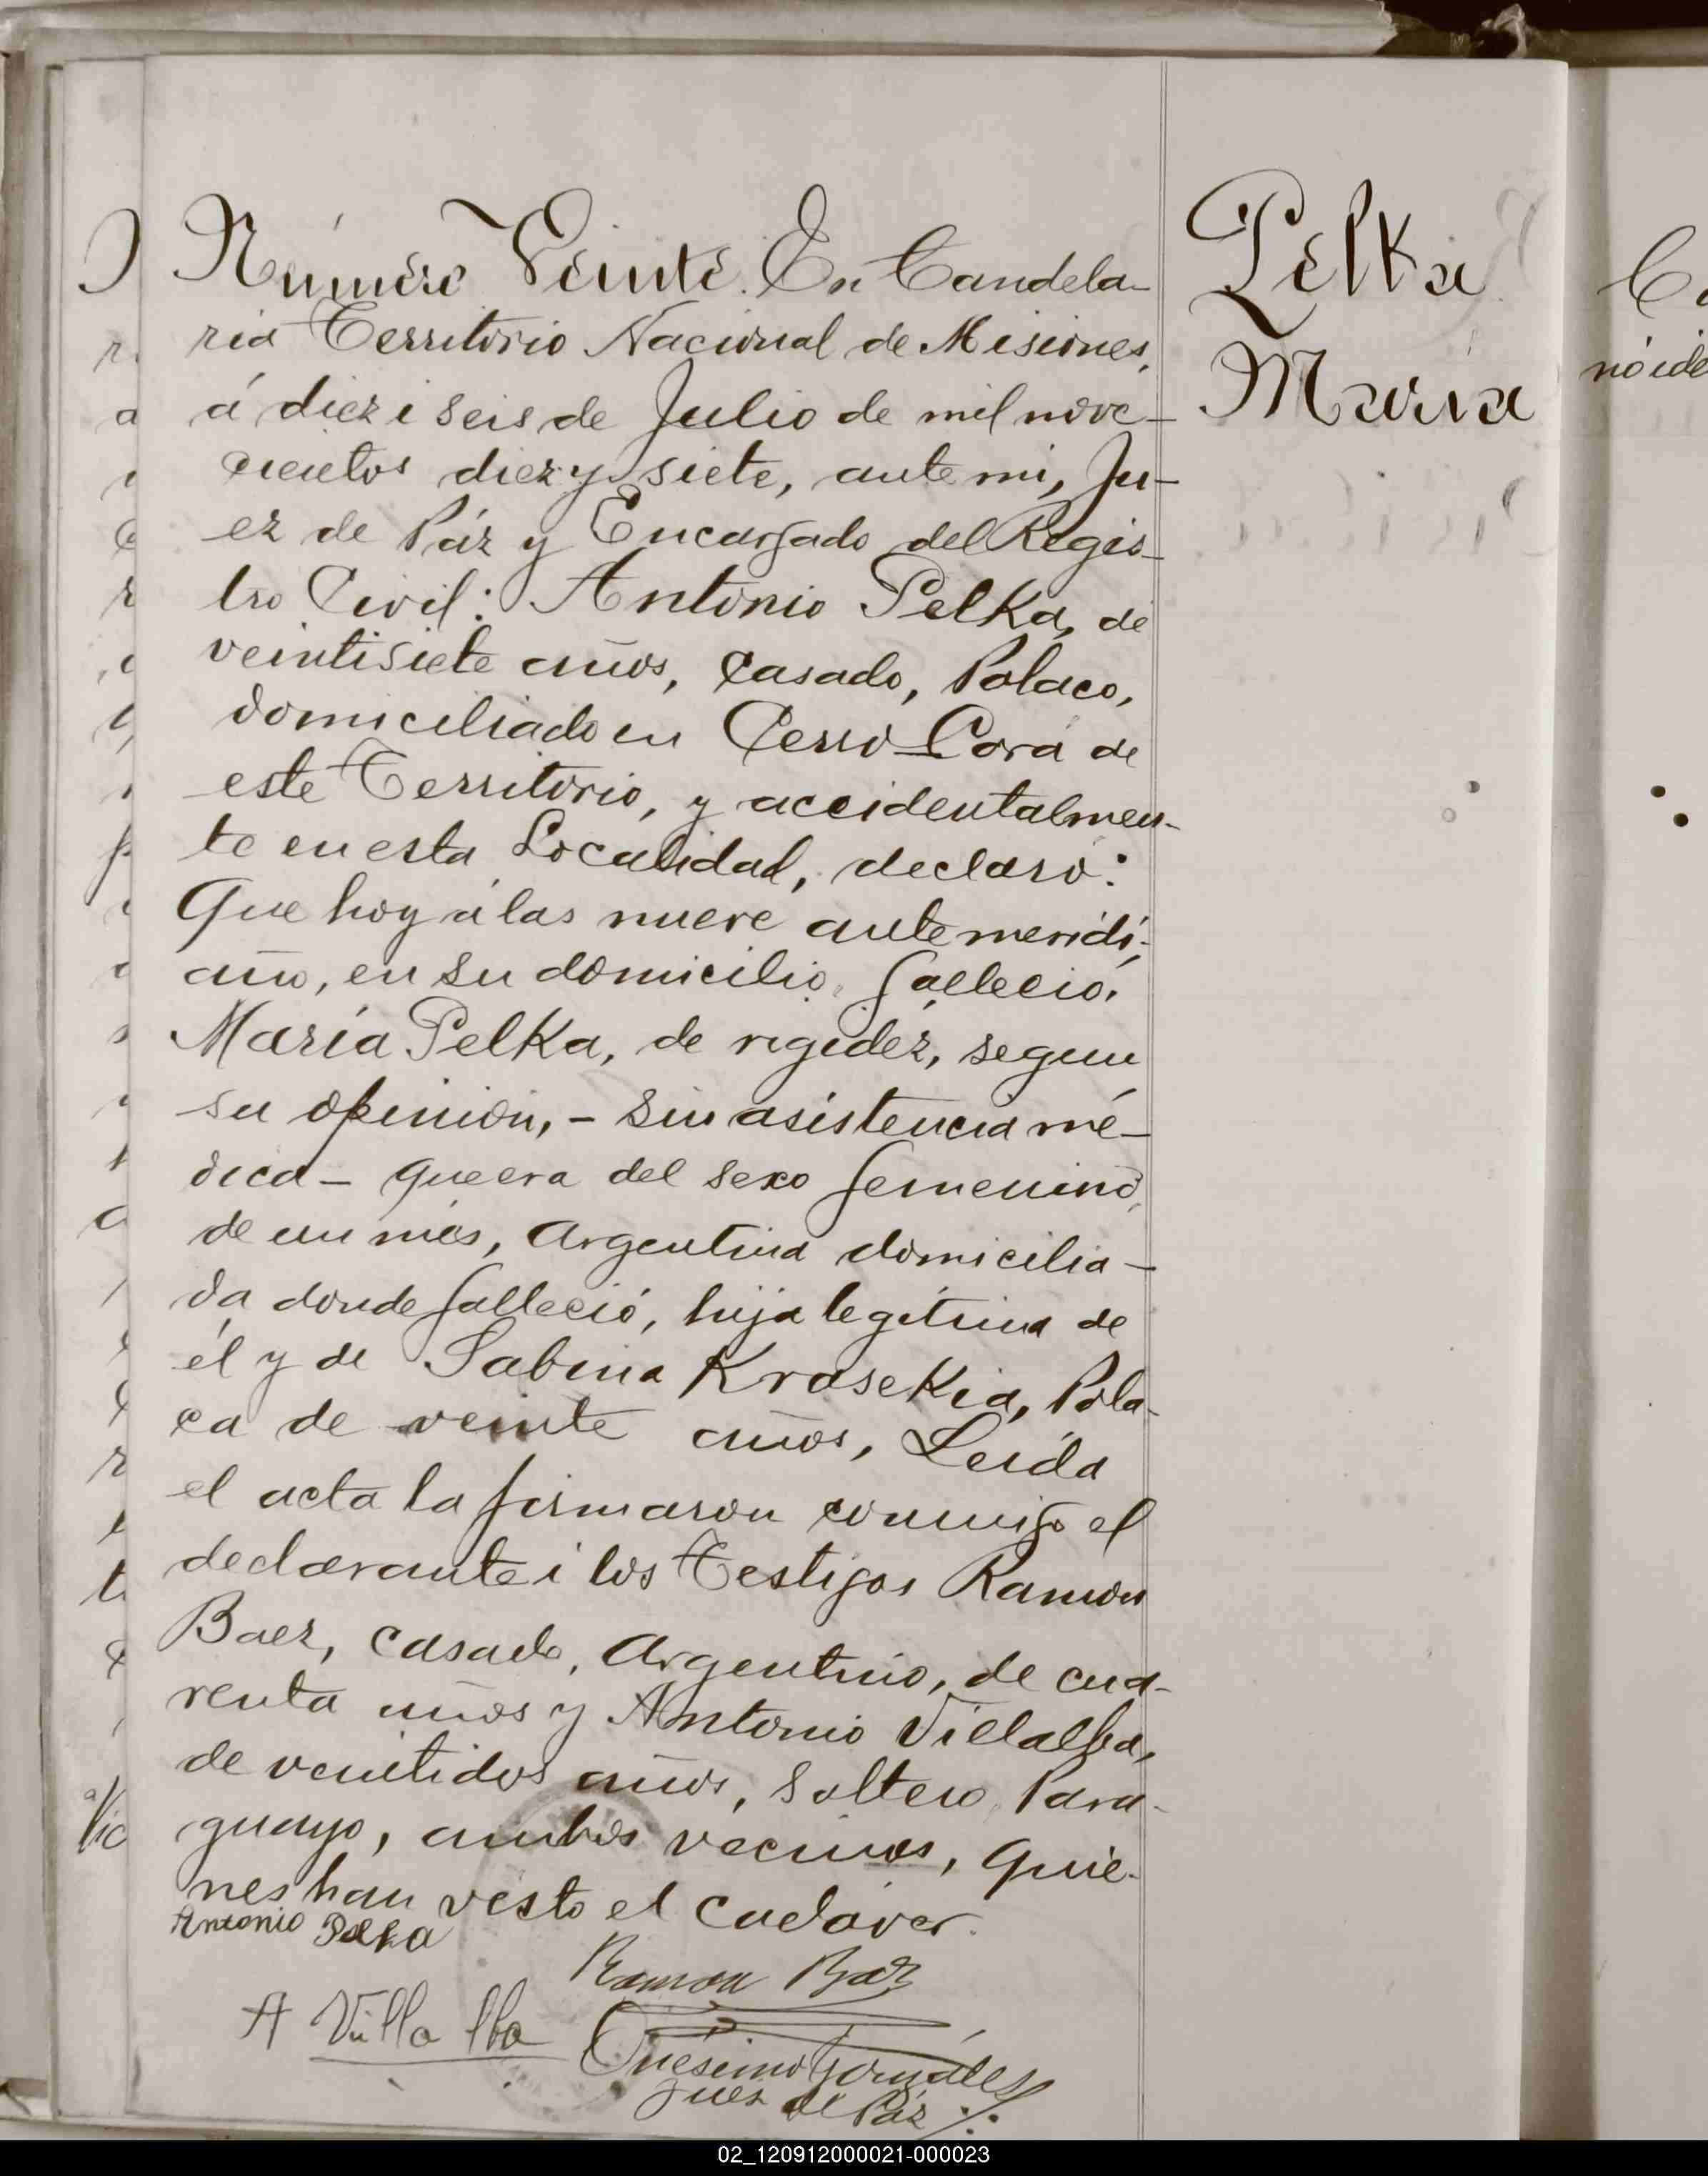 Número Veinte. En Candela-
ria Territorio Nacional de Misiones,
á diez i seis de Julio de mil nove-
cientos diez y siete, ante mi, Ju-
ez de Páz y Encargado del Regis-
tro Civil: Antonio Pelka, de
veintisiete años, casado, Polaco,
domiciliado en Cerro-Corá de
este Territorio, y accidentalmen-
te en esta Localidad, declaró:
Que hoy á las nueve antemeridi-
ano, en su domicilio, falleció,
María Pelka, de rigidez, segun
su opinión, - sin asistencia mé-
dica - que era del sexo femenino,
de un mes, Argentina domicilia-
da donde falleció, hija legítima de
él y de Sabina Krasekia, Pola-
ca de veinte años, Leída
el acta la firmaron conmigo el
declarante i los Testigos Ramon
Baez, casado, Argentino, de cua-
renta años y Antonio Villalba,
de venitidos años, soltero, Para-
guayo, ambos vecinos, quie-
nes han visto el cadáver.
Antonio Pelka
Ramon Baez
A Villalba
Onésimo Gonzáles
Juez de Páz
Pelka
María
02_120912000021-000023